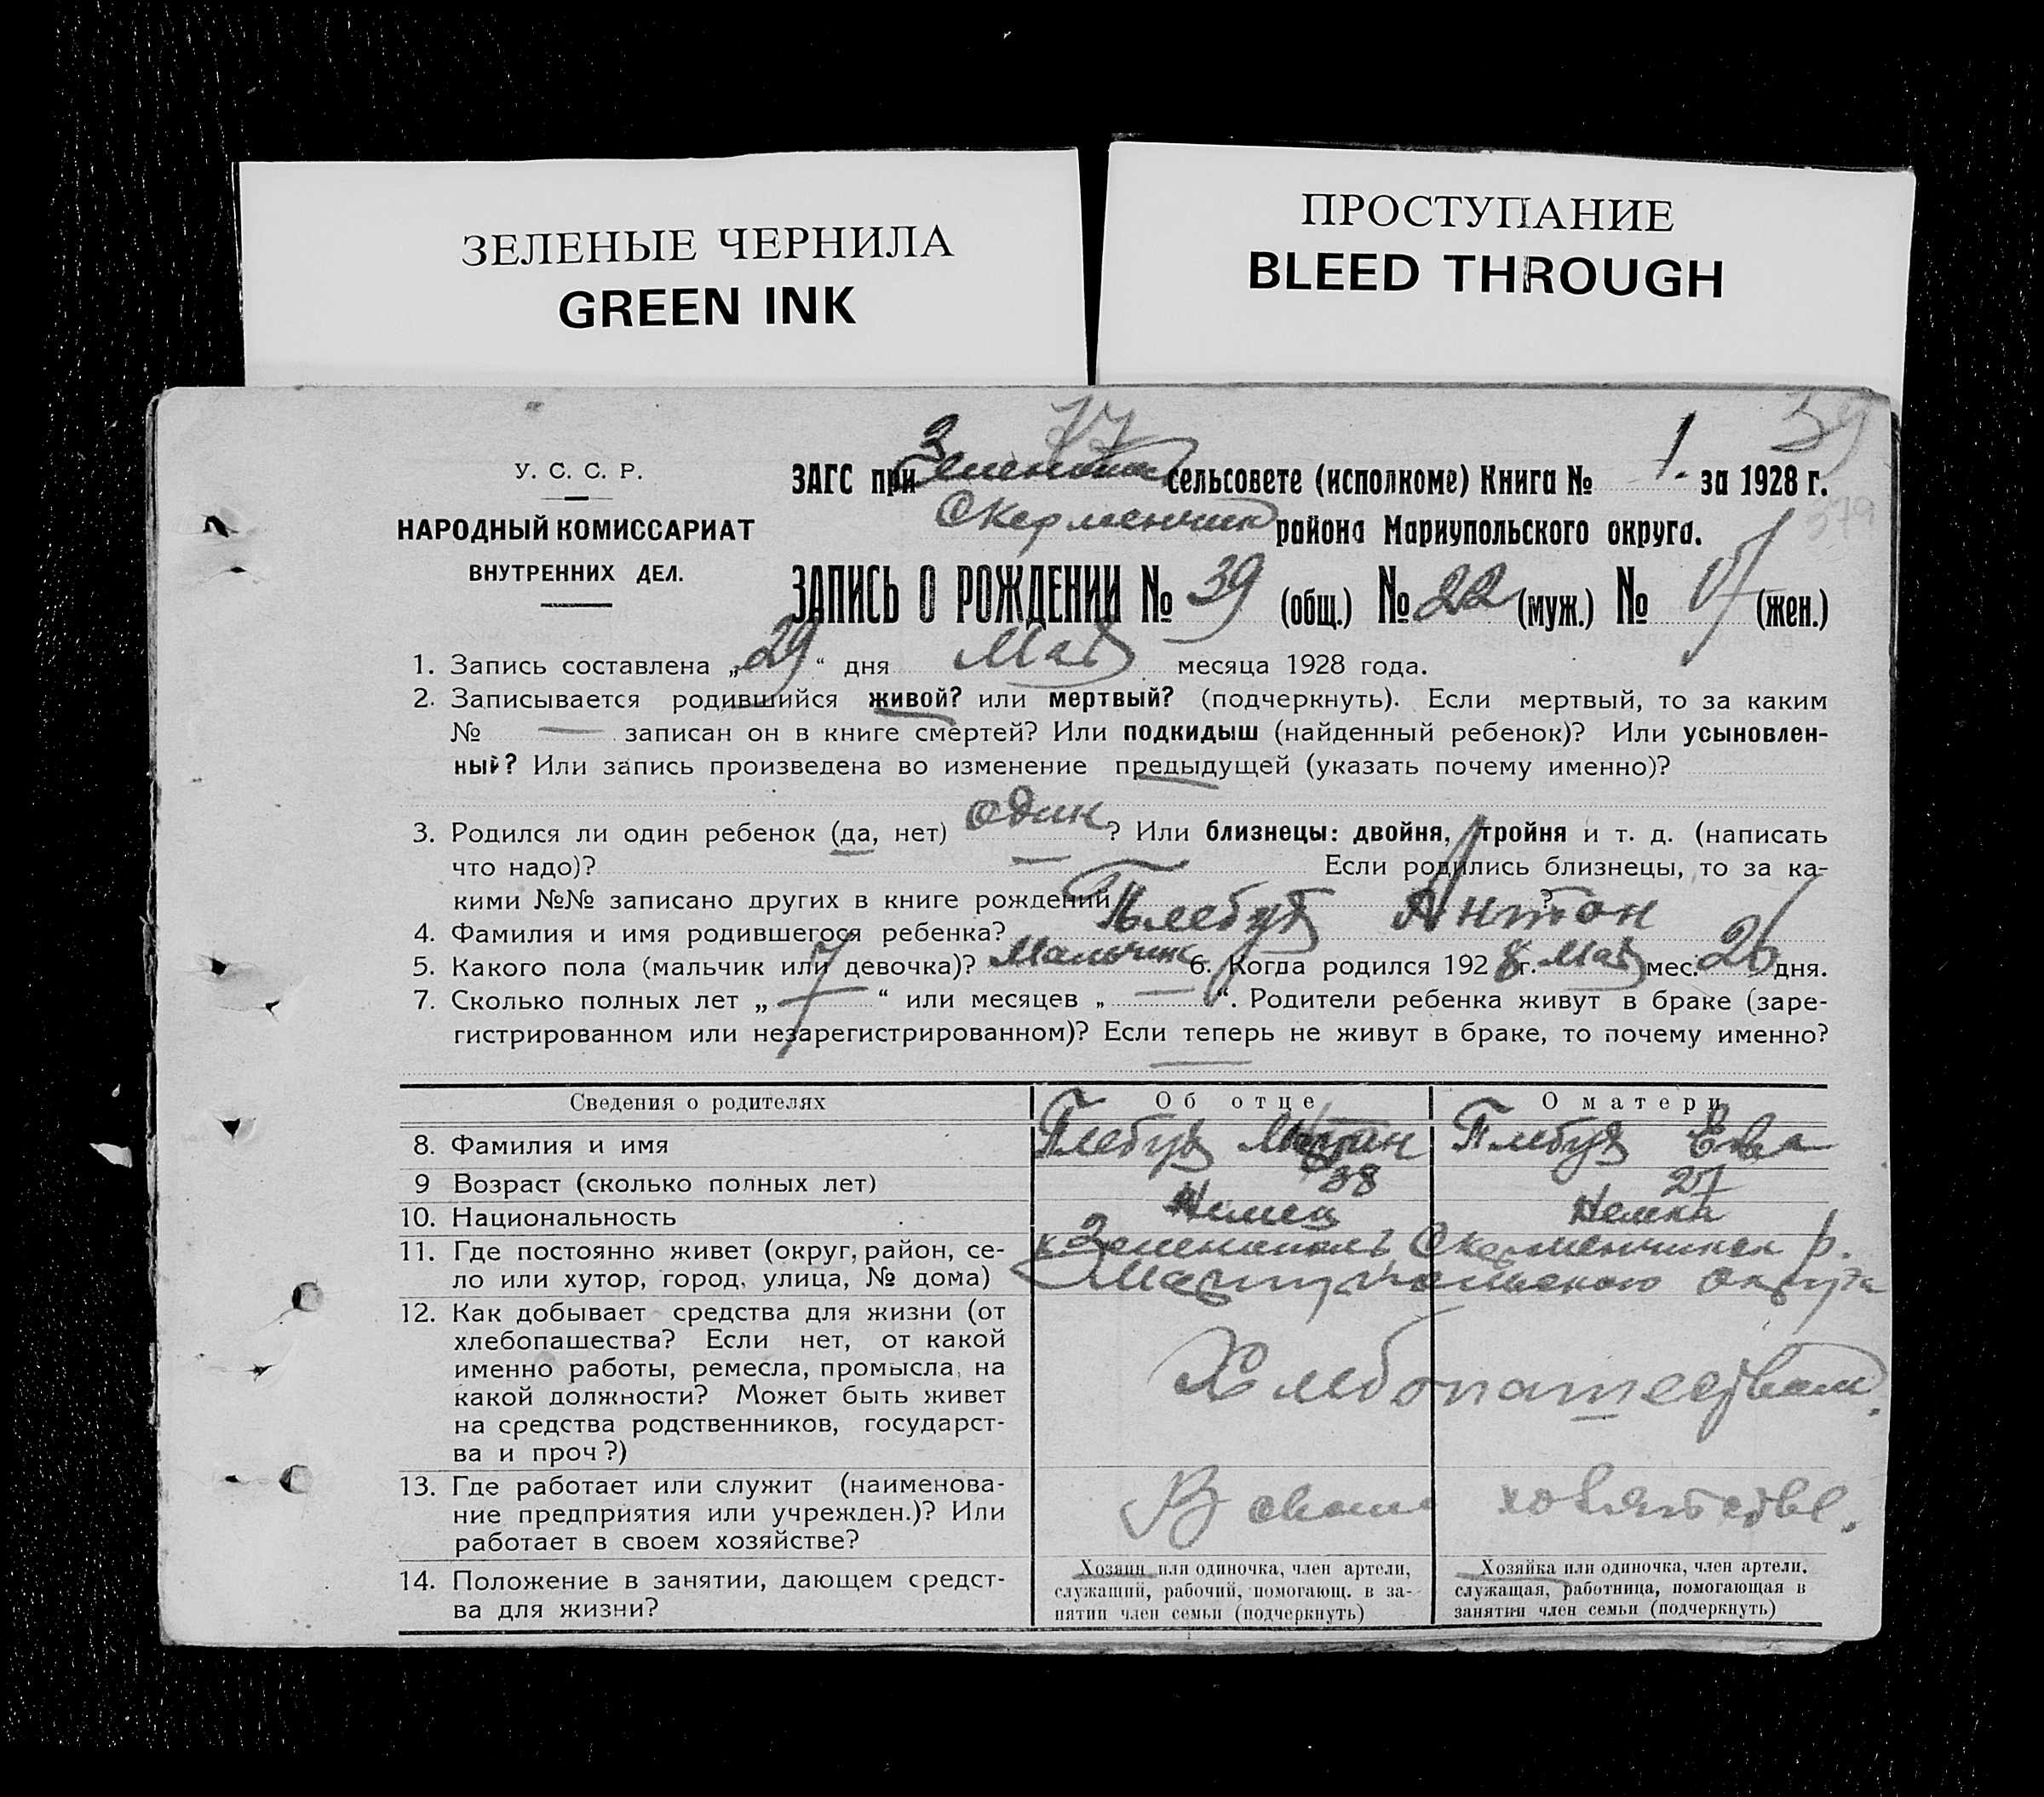 ЗЕЛЕНЫЕ ЧЕРНИЛА
GREEN INK
ПРОСТУПАНИЕ
BLEED THROUGH
77
39
379
У. С. С. Р.
НАРОДНЫЙ КОМИССАРИАТ
ВНУТРЕННИХ ДЕЛ.
ЗАГС при сельсовете (исполкоме) Книга № 1. за 1928 г.
района Мариупольского округа.
ЗАПИСЬ О РОЖДЕНИИ № 39 (общ.) № 22 (муж.) № (жен.)
1. Запись составлена „29“ дня Мая месяца 1928 года.
2. Записывается родившийся живой? или мертвый? (подчеркнуть). Если мертвый, то за каким
№ — записан он в книге смертей? Или подкидыш (найденный ребенок)? Или усыновлен-
ный? Или запись произведена во изменение предыдущей (указать почему именно)?
3. Родился ли один ребенок (да, нет) один? Или близнецы: двойня, тройня и т. д. (написать
что надо)? — Если родились близнецы, то за ка-
кими №№ записано других в книге рождений ?
4. Фамилия и имя родившегося ребенка? Антон
5. Какого пола (мальчик или девочка)? Мальчик 6. Когда родился 1928 г. Мая мес. 26 дня.
7. Сколько полных лет „ “ или месяцев „ — “. Родители ребенка живут в браке (заре-
гистрированном или незарегистрированном)? Если теперь не живут в браке, то почему именно?
—
Сведения о родителях Об отце О матери
8. Фамилия и имя Ева
9 Возраст (сколько полных лет) 38 27
10. Национальность Немец Немка
11. Где постоянно живет (округ, район, се-
ло или хутор, город, улица, № дома) Мариупольского округа
12. Как добывает средства для жизни (от
хлебопашества? Если нет, от какой
именно работы, ремесла, промысла, на
какой должности? Может быть живет
на средства родственников, государст-
ва и проч?)
Хлебопашеством.
13. Где работает или служит (наименова-
ние предприятия или учрежден.)? Или
работает в своем хозяйстве?
В своем хозяйстве.
14. Положение в занятии, дающем средст-
ва для жизни?
Хозяин или одиночка, член артели,
служащий, рабочий, помогающ. в за-
нятии член семьи (подчеркнуть)
Хозяйка или одиночка, член артели,
служащая, работница, помогающая в
занятии член семьи (подчеркнуть)